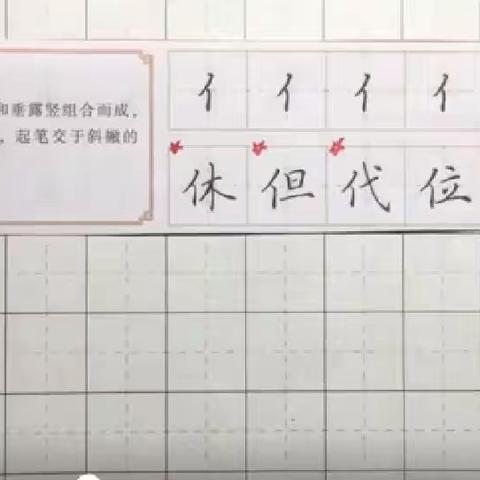 和垂露竖组合而成，
，起笔交于斜撇的
亻 亻 亻 亻
休 但 代 位